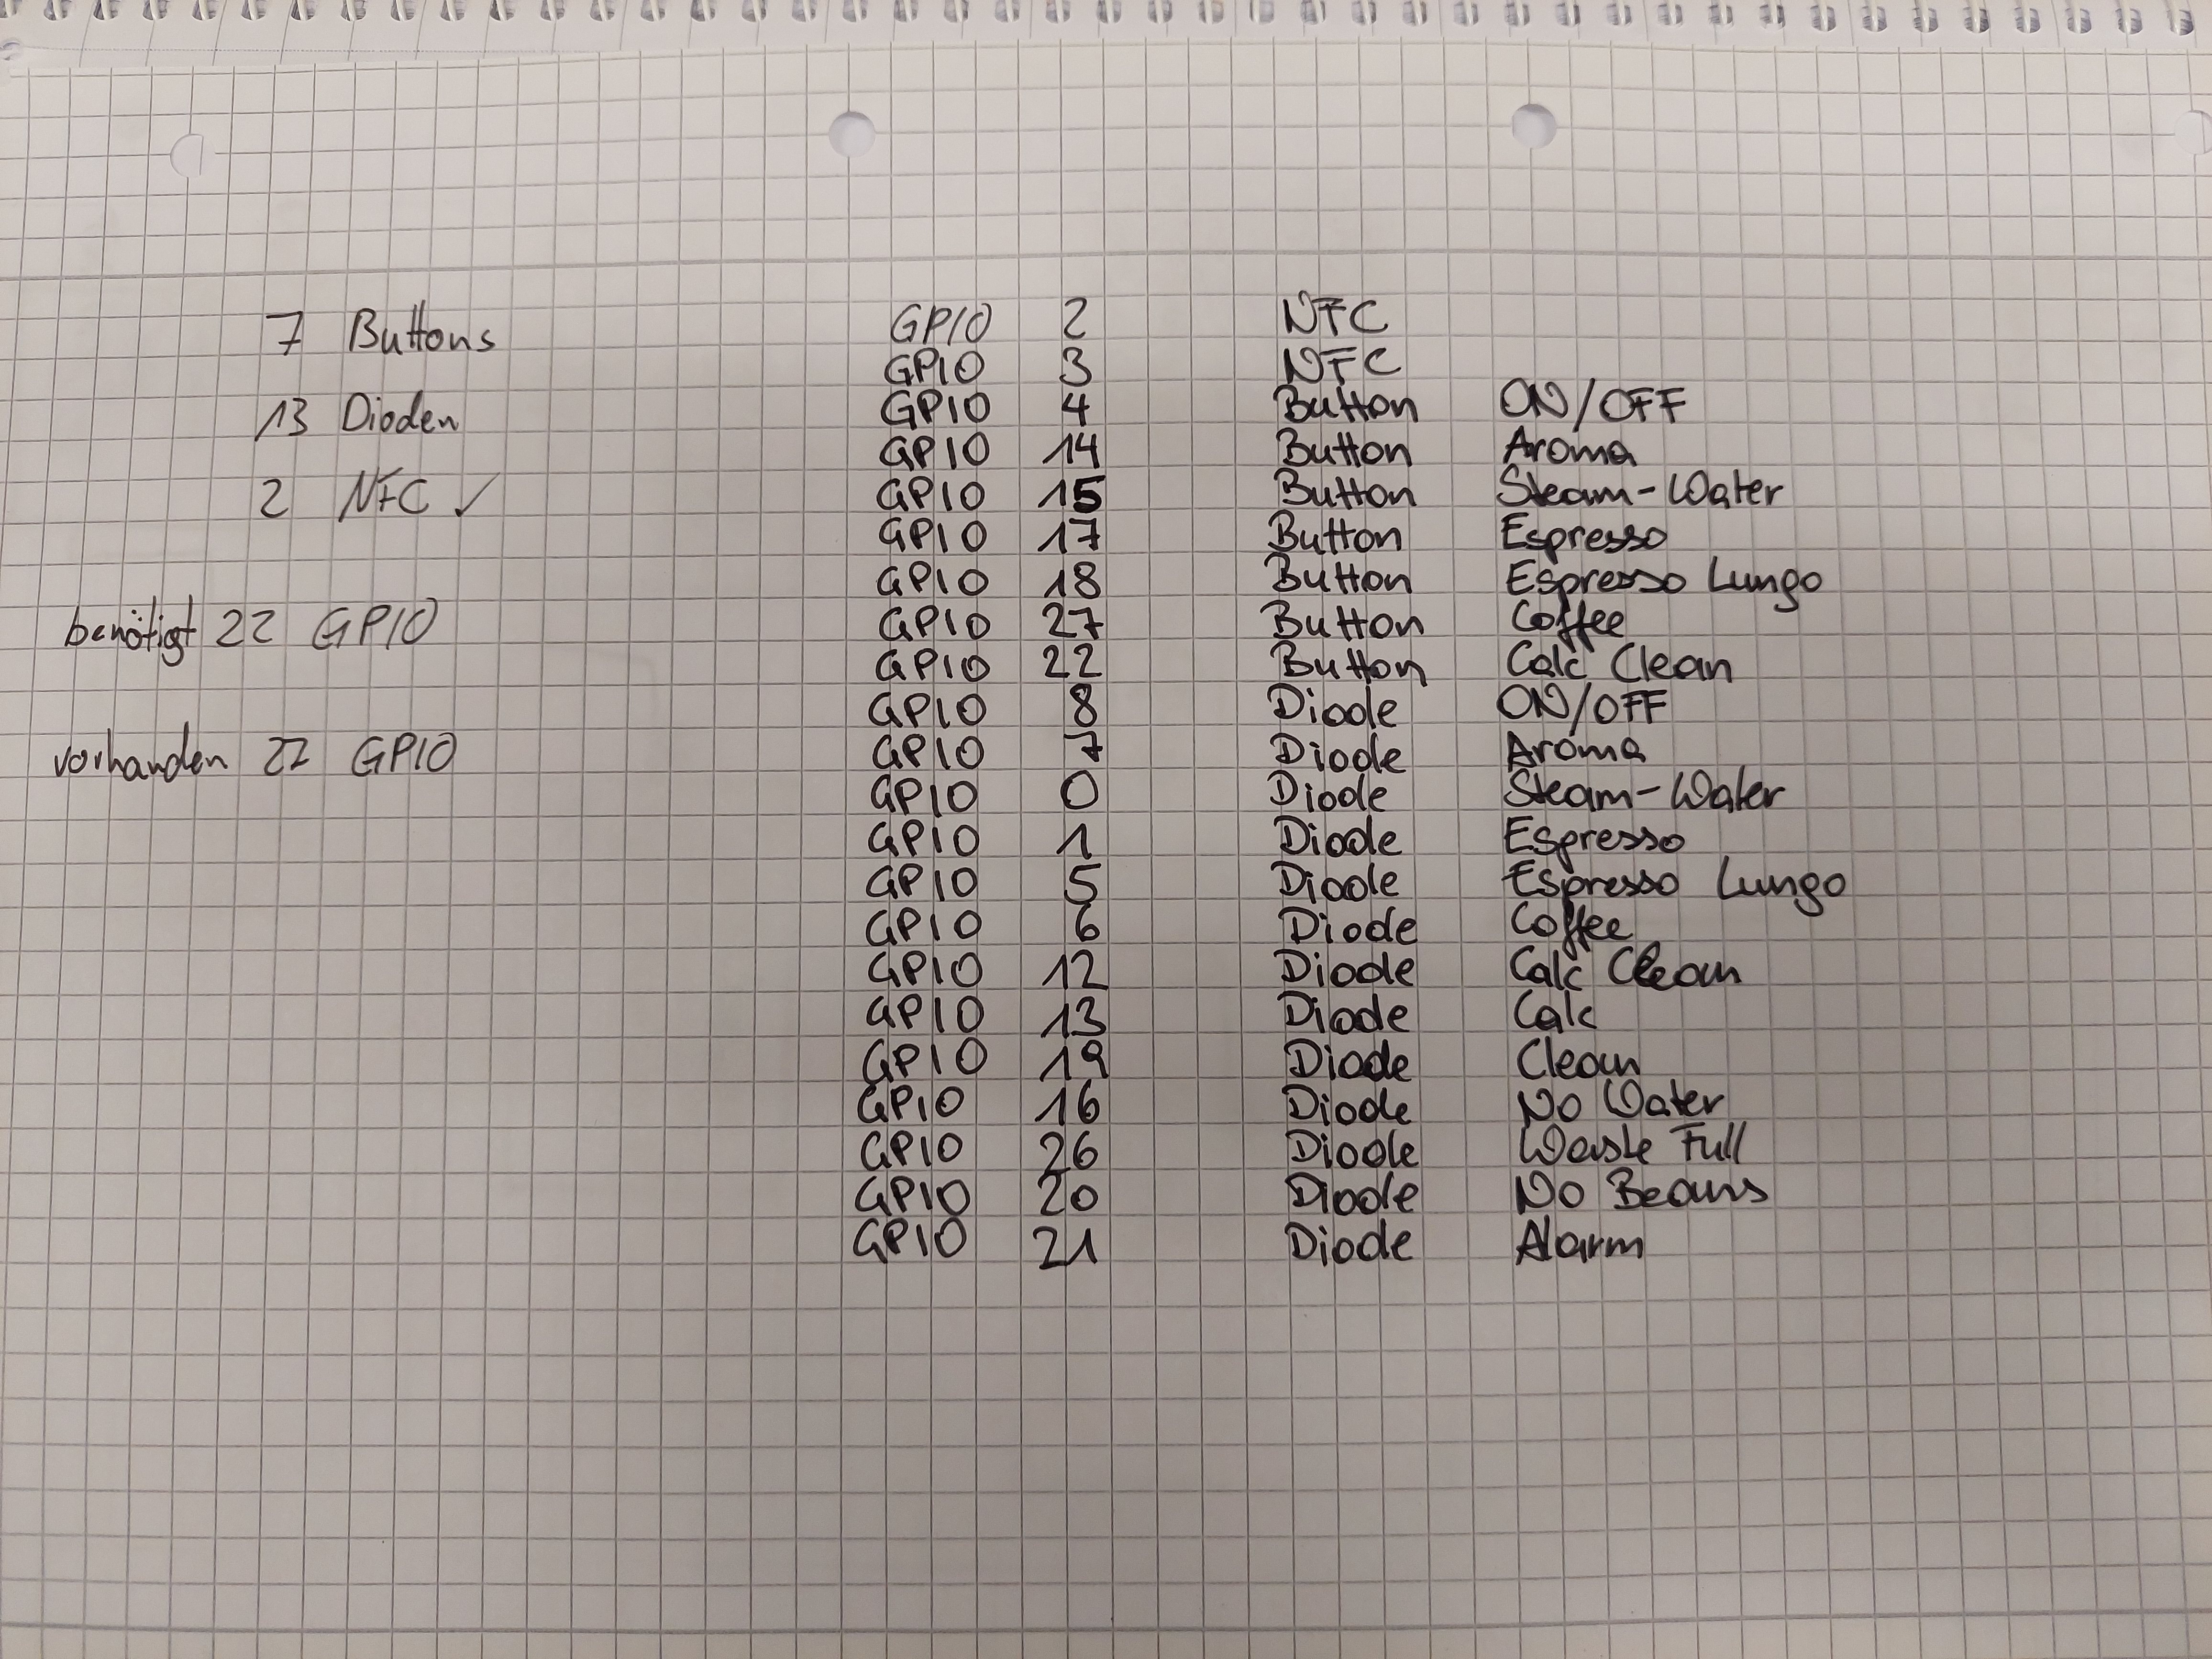 7 Buttons
13 Dioden
2 NFC ✓
benötigt 22 GPIO
vorhanden 22 GPIO
GPIO 2 NFC
GPIO 3 NFC
GPIO 4 Button ON/OFF
GPIO 14 Button Aroma
GPIO 15 Button Steam-Water
GPIO 17 Button Espresso
GPIO 18 Button Espresso Lungo
GPIO 27 Button Coffee
GPIO 22 Button Calc Clean
GPIO 8 Diode ON/OFF
GPIO 7 Diode Aroma
GPIO 0 Diode Steam-Water
GPIO 1 Diode Espresso
GPIO 5 Diode Espresso Lungo
GPIO 6 Diode Coffee
GPIO 12 Diode Calc Clean
GPIO 13 Diode Calc
GPIO 19 Diode Clean
GPIO 16 Diode No Water
GPIO 26 Diode Waste Full
GPIO 20 Diode No Beans
GPIO 21 Diode Alarm